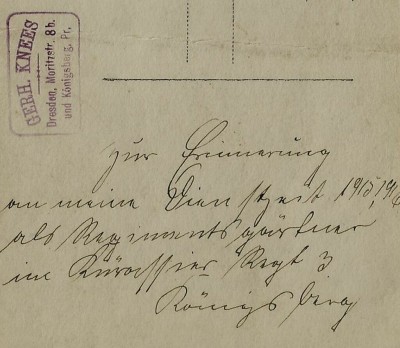 GERH. KNEES
Dresden, Moritzstr. 8b.
und Königsberg, Pr.
zur Erinnerung
an meine Dienstzeit 1915/1916
als Regimentsgärtner
im Kürassier Regt 3
Königsberg